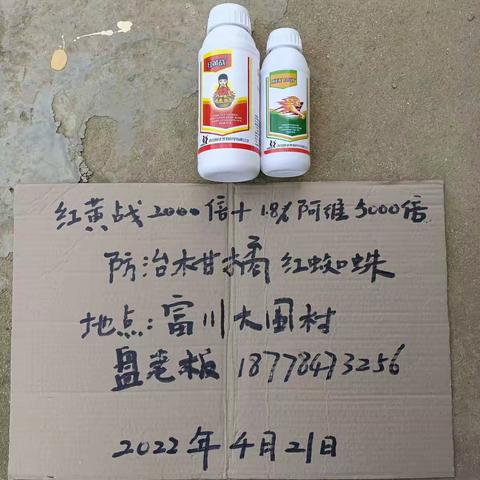 红黄战
红黄战2000倍+1.8%阿维5000倍
防治柑橘红蜘蛛
地点:富川大围村
盘老板 18778473256
2022年4月21日